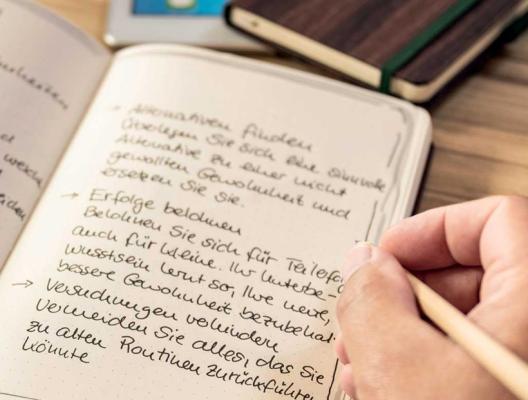 welch
→ Alternativen finden
Überlegen Sie sich eine sinnvolle
Alternative zu einer nicht
gewollten Gewohnheit und
ersetzen Sie sie.
→ Erfolge belohnen
Belohnen Sie sich für Teilerfo
auch für kleine. Ihr Unterbe-
wusstsein lernt so, Ihre neue,
bessere Gewohnheit beizubehal
→ Versuchungen verhindern
Vermeiden Sie alles, das Sie
zu alten Routinen zurückführen
könnte